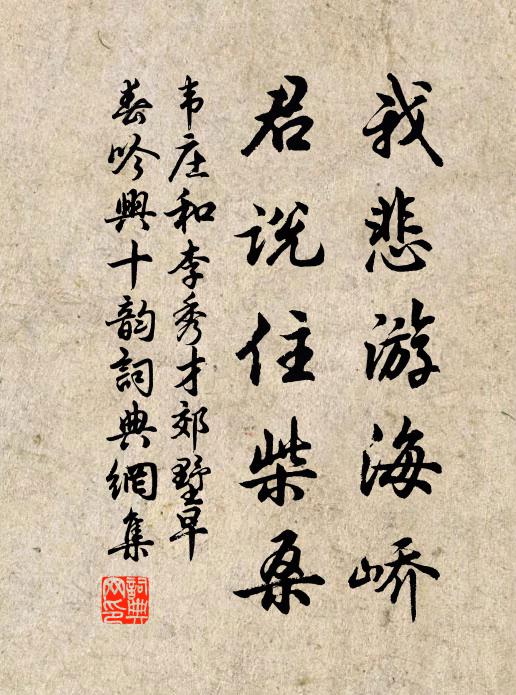 我悲游海峤
君说住柴桑
韦庄和李秀才郊墅早
春吟興十韵詞典網集